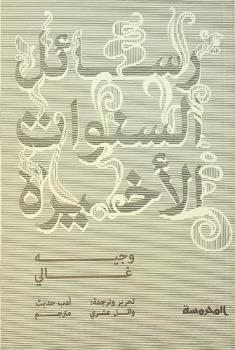 رسائل
السنوات
الأخيرة
وجيه
غالي
تحرير وترجمة:
وائل عشري
أدب حديث
مترجم
المحروسة